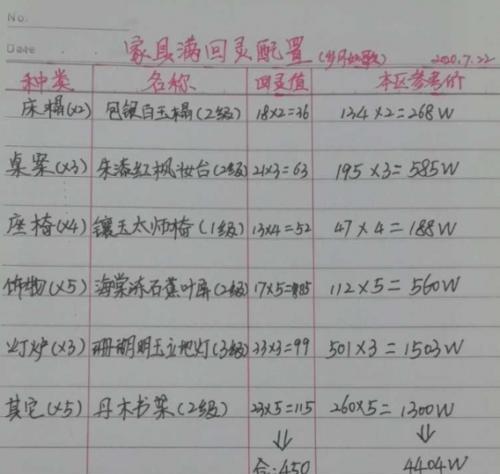 No.
Date 家具满回灵配置(岁月如歌) 2020.7.22
种类 名称 回灵值 本区参考价
床榻(x2) 包银白玉榻(2级) 18x2=36 134x2=268W
桌案(x3) 朱漆红枫妆台(2级) 21x3=63 195x3=585W
座椅(x4) 镶玉太师椅(1级) 13x4=52 47x4=188W
饰物(x5) 海棠冻石蕉叶屏(2级) 17x5=85 112x5=560W
灯炉(x3) 珊瑚明玉立地灯(3级) 33x3=99 501x3=1503W
其它(x5) 丹木书架(2级) 23x5=115 260x5=1300W
合:450 4404W